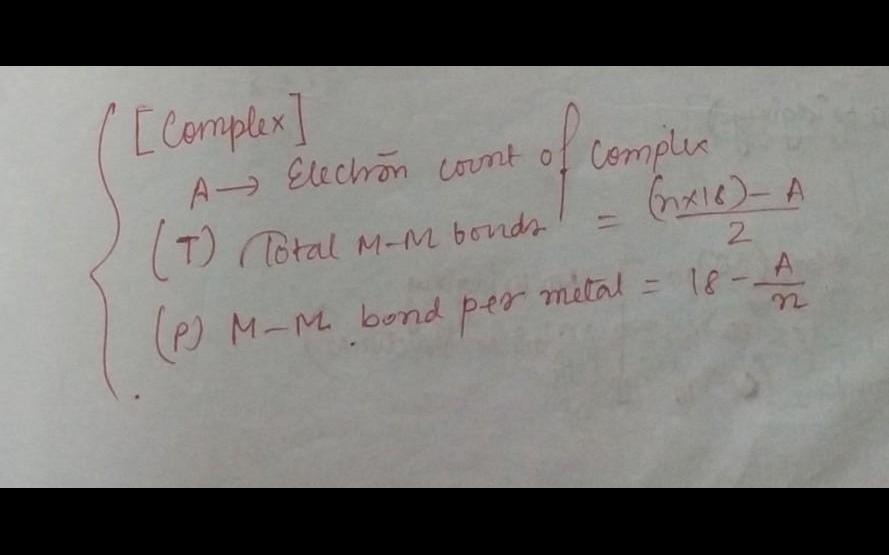 [Complex]
A → Electron count of complex
(T) Total M-M bonds = (n×18) - A / 2
(P) M-M bond per metal = 18 - A/n